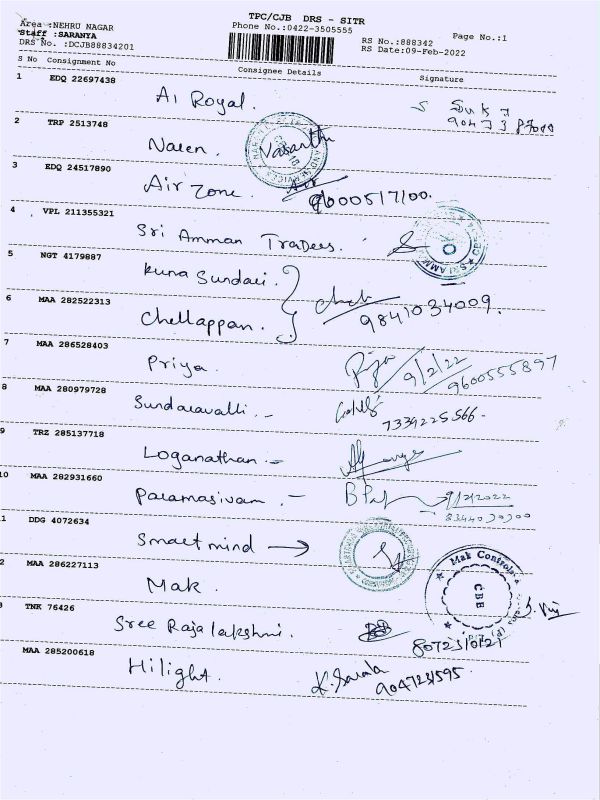 TPC/CJB DRS - SITR
Area :NEHRU NAGAR
Phone No.:0422-3505555
Page No.:1
Staff :SARANYA
RS No.:888342
DRS No. :DCJB88834201
RS Date:09-Feb-2022
S No Consignment No Consignee Details Signature
1 EDQ 22697438
A1 Royal.
2 TRP 2513748
Naeen. Vasantha
3 EDQ 24517890
Air Zone. 96000517100.
4 VPL 211355321
Sri Amman Tradees.
5 NGT 4179887
Kuna Sundari.
6 MAA 282522313
Chellappan. 9841034009.
7 MAA 286528403
Priya. Priya 9/2/22 9600555897
8 MAA 280979728
Sundaravalli. - 7339225566-
9 TRZ 285137718
Loganathan :-
10 MAA 282931660
Paramasivam. - 9/2/2022
8344030300
1 DDG 4072634
Smart mind →
2 MAA 286227113
Mak. Mak Controls CBE
3 TNK 76426
Sree Rajalakshmi.
MAA 285200618
Hilight. K. Sarala